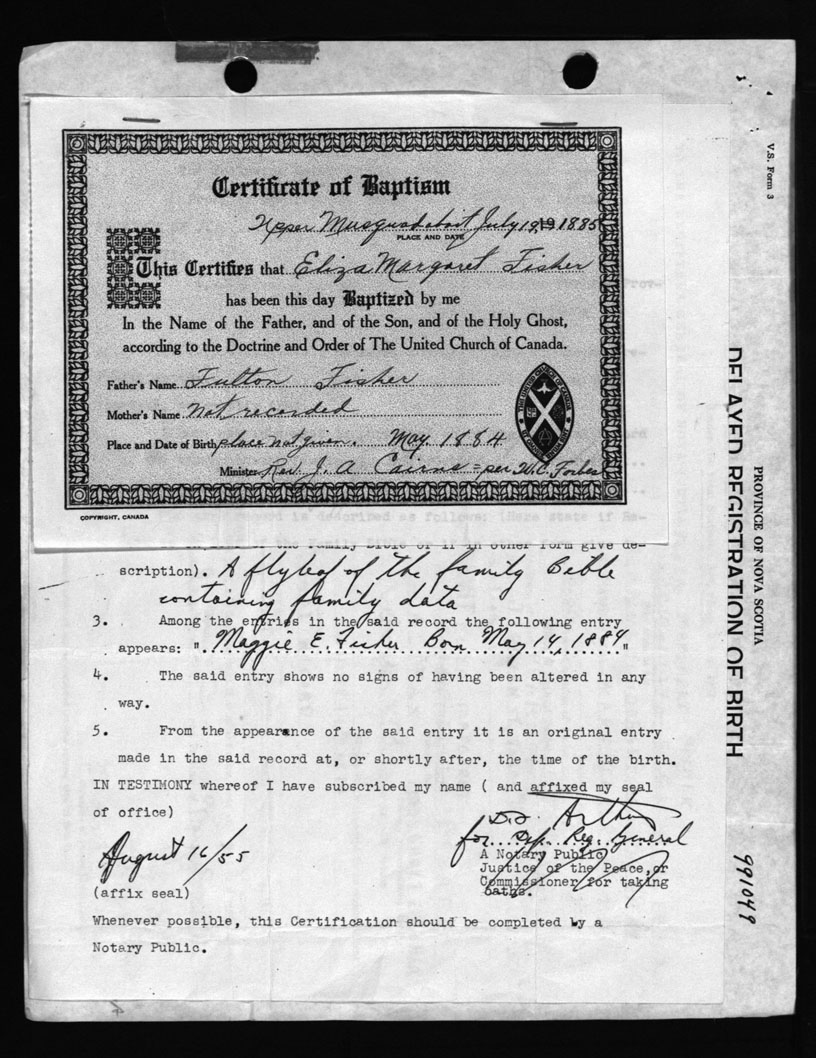 Certificate of Baptism
Upper Musquodoboit July 19, 19 1885
PLACE AND DATE
This Certifies that Eliza Margaret Fisher
has been this day Baptized by me
In the Name of the Father, and of the Son, and of the Holy Ghost,
according to the Doctrine and Order of The United Church of Canada.
Father's Name Fulton Fisher
Mother's Name Not recorded
Place and Date of Birth place not given. May 1884
Minister Rev. J. A Cairns = per W.C. Forbes
COPYRIGHT, CANADA
Prov-
is described as follows: (Here state if
of the Family Bible or if in other form give de-
scription). A flyleaf of the family Bible
containing family data
3. Among the entries in the said record the following entry
appears: " Maggie E. Fisher Born May 14, 1884 "
4. The said entry shows no signs of having been altered in any
way.
5. From the appearance of the said entry it is an original entry
made in the said record at, or shortly after, the time of the birth.
IN TESTIMONY whereof I have subscribed my name ( and affixed my seal
of office)
August 16/55
for Dep. Reg. General
A Notary Public
Justice of the Peace, or
Commissioner for taking
oaths.
(affix seal)
Whenever possible, this Certification should be completed by a
Notary Public.
V.S. Form 3
PROVINCE OF NOVA SCOTIA
DELAYED REGISTRATION OF BIRTH
991049